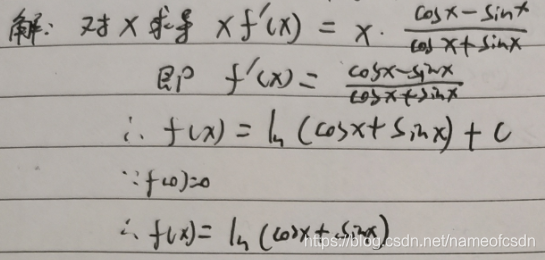 解: 对 x 求导 x f'(x) = x · (cosx - sinx)/(cosx + sinx)
即 f'(x) = (cosx - sinx)/(cosx + sinx)
∴ f(x) = ln (cosx + sinx) + C
∵ f(0)=0
∴ f(x) = ln (cosx + sinx)
https://blog.csdn.net/nameofcsdn